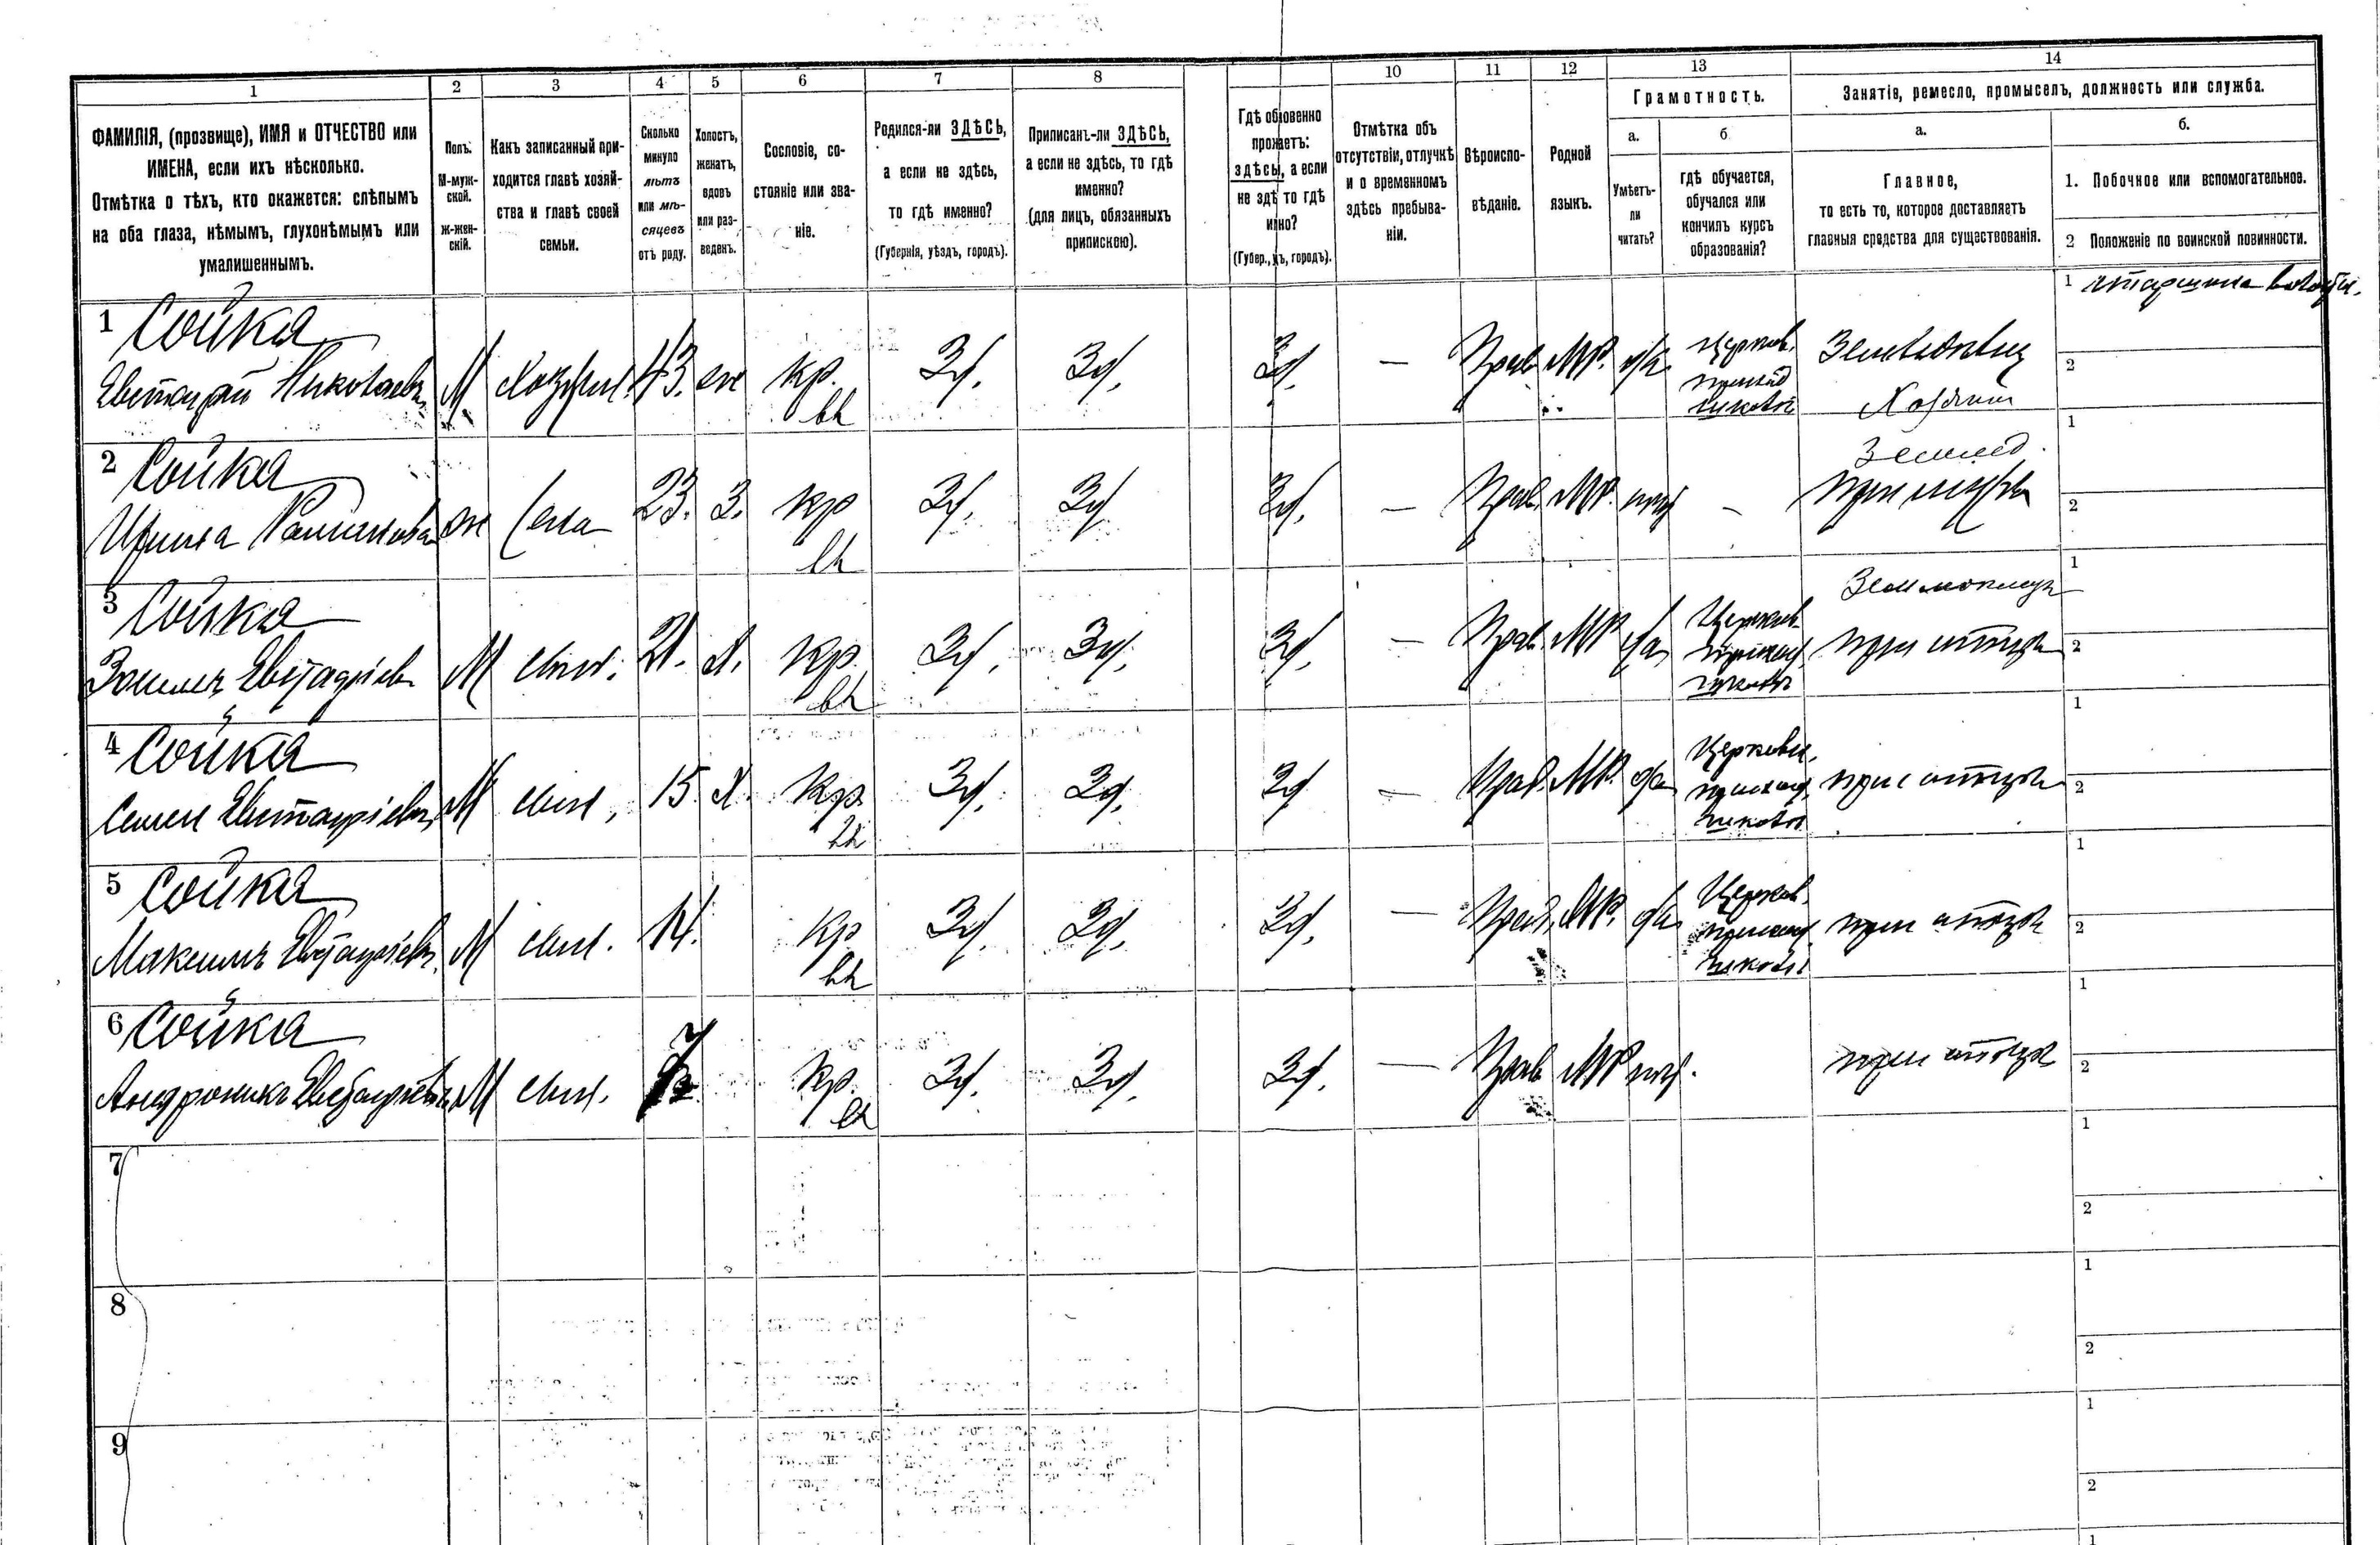 1 2 3 4 5 6 7 8 10 11 12 13 14
ФАМИЛІЯ, (прозвище), ИМЯ и ОТЧЕСТВО или
ИМЕНА, если ихъ нѣсколько.
Отмѣтка о тѣхъ, кто окажется: слѣпымъ
на оба глаза, нѣмымъ, глухонѣмымъ или
умалишеннымъ.
Полъ.
М-муж-
ской.
ж-жен-
скій.
Какъ записанный при-
ходится главѣ хозяй-
ства и главѣ своей
семьи.
Сколько
минуло
лѣтъ
или мѣ-
сяцевъ
отъ роду.
Холостъ,
женатъ,
вдовъ
или раз-
веденъ.
Сословіе, со-
стояніе или зва-
ніе.
Родился-ли ЗДѢСЬ,
а если не здѣсь,
то гдѣ именно?
(Губернія, уѣздъ, городъ).
Приписанъ-ли ЗДѢСЬ,
а если не здѣсь, то гдѣ
именно?
(для лицъ, обязанныхъ
припискою).
Гдѣ обовенно
прожетъ:
здѣсь, а если
не здѣ то гдѣ
ино?
(Губер., ъ, городъ).
Отмѣтка объ
отсутствіи, отлучкѣ
и о временномъ
здѣсь пребыва-
ніи.
Вѣроиспо-
вѣданіе.
Родной
языкъ.
Грамотность.
а.
Умѣетъ-
ли
читать?
б
гдѣ обучается,
обучался или
кончилъ курсъ
образованія?
Занятіе, ремесло, промыселъ, должность или служба.
а.
Главное,
то есть то, которое доставляетъ
главныя средства для существованія.
б.
1. Побочное или вспомогательное.
2 Положеніе по воинской повинности.
1 Сойка 1 старшина
Евстафій Николаевъ М хозяин 43. же кр. Зд. Зд. Зд. — Прав. МР. да Церков. приход 2
Хозяин
2 Сойка 1 Землед.
Ирина ж жена 23. З. кр Зд. Зд Зд. — Прав. МР. нѣт — при мужѣ 2
3 Сойка 1
М сын. 21. Х. Кр. Зд. Зд. Зд. — Прав. МР да Церков. приход при отцѣ 2
4 Сойка 1
Семен Евстафіевъ М сын, 15. Х. Кр. Зд. Зд. Зд — Прав. МР. да Церковн. приход. при отцѣ 2
5 Сойка 1
Максимъ Евстафіевъ М сын. 14. Кр Зд. Зд. Зд. — Прав. МР. да Церков. приход. при отцѣ 2
6 Сойка 1
Андроникъ Евстафіевъ М сын. Кр. Зд. Зд. Зд. — Прав МР нѣт. при отцѣ 2
7 1
2
8 1
2
9 1
2
1